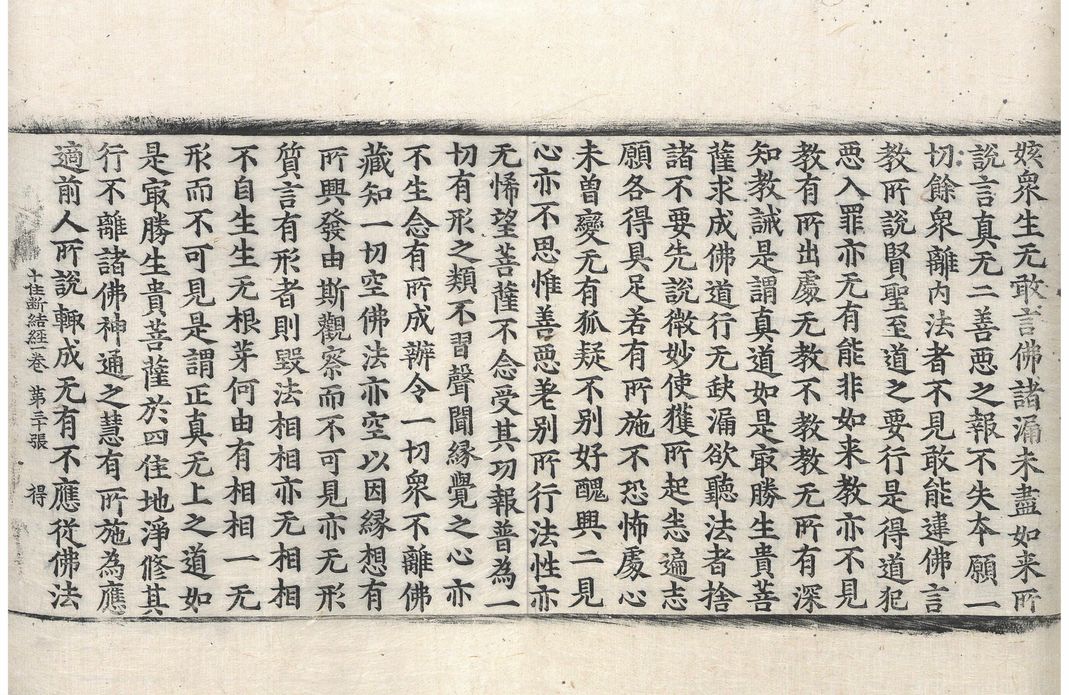 姟衆生无敢言佛諸漏未盡如来所
說言真无二善惡之報不失夲願一
切餘衆離内法者不見敢能違佛言
教所說賢聖至道之要行是得道犯
惡入罪亦无有能非如来教亦不見
教有所出處无教不教教无所有深
知教誡是謂真道如是㝡勝生貴菩
薩求成佛道行无缺漏欲聽法者捨
諸不要先說微妙使獲所起恙遍志
願各得具足若有所施不恐怖處心
未曾變无有狐疑不别好醜興二見
心亦不思惟善惡差别所行法性亦
无悕望菩薩不念受其功報普為一
切有形之類不習聲聞縁覺之心亦
不生念有所成辨令一切衆不離佛
藏知一切空佛法亦空以因縁想有
所興發由斯觀察而不可見亦无形
質言有形者則毀法相相亦无相相
不自生生无根芽何由有相相一无
形而不可見是謂正真无上之道如
是㝡勝生貴菩薩於四住地淨修其
行不離諸佛神通之慧有所施為應
適前人所說輙成无有不應從佛法
十住斷結經一卷 苐三十張 得